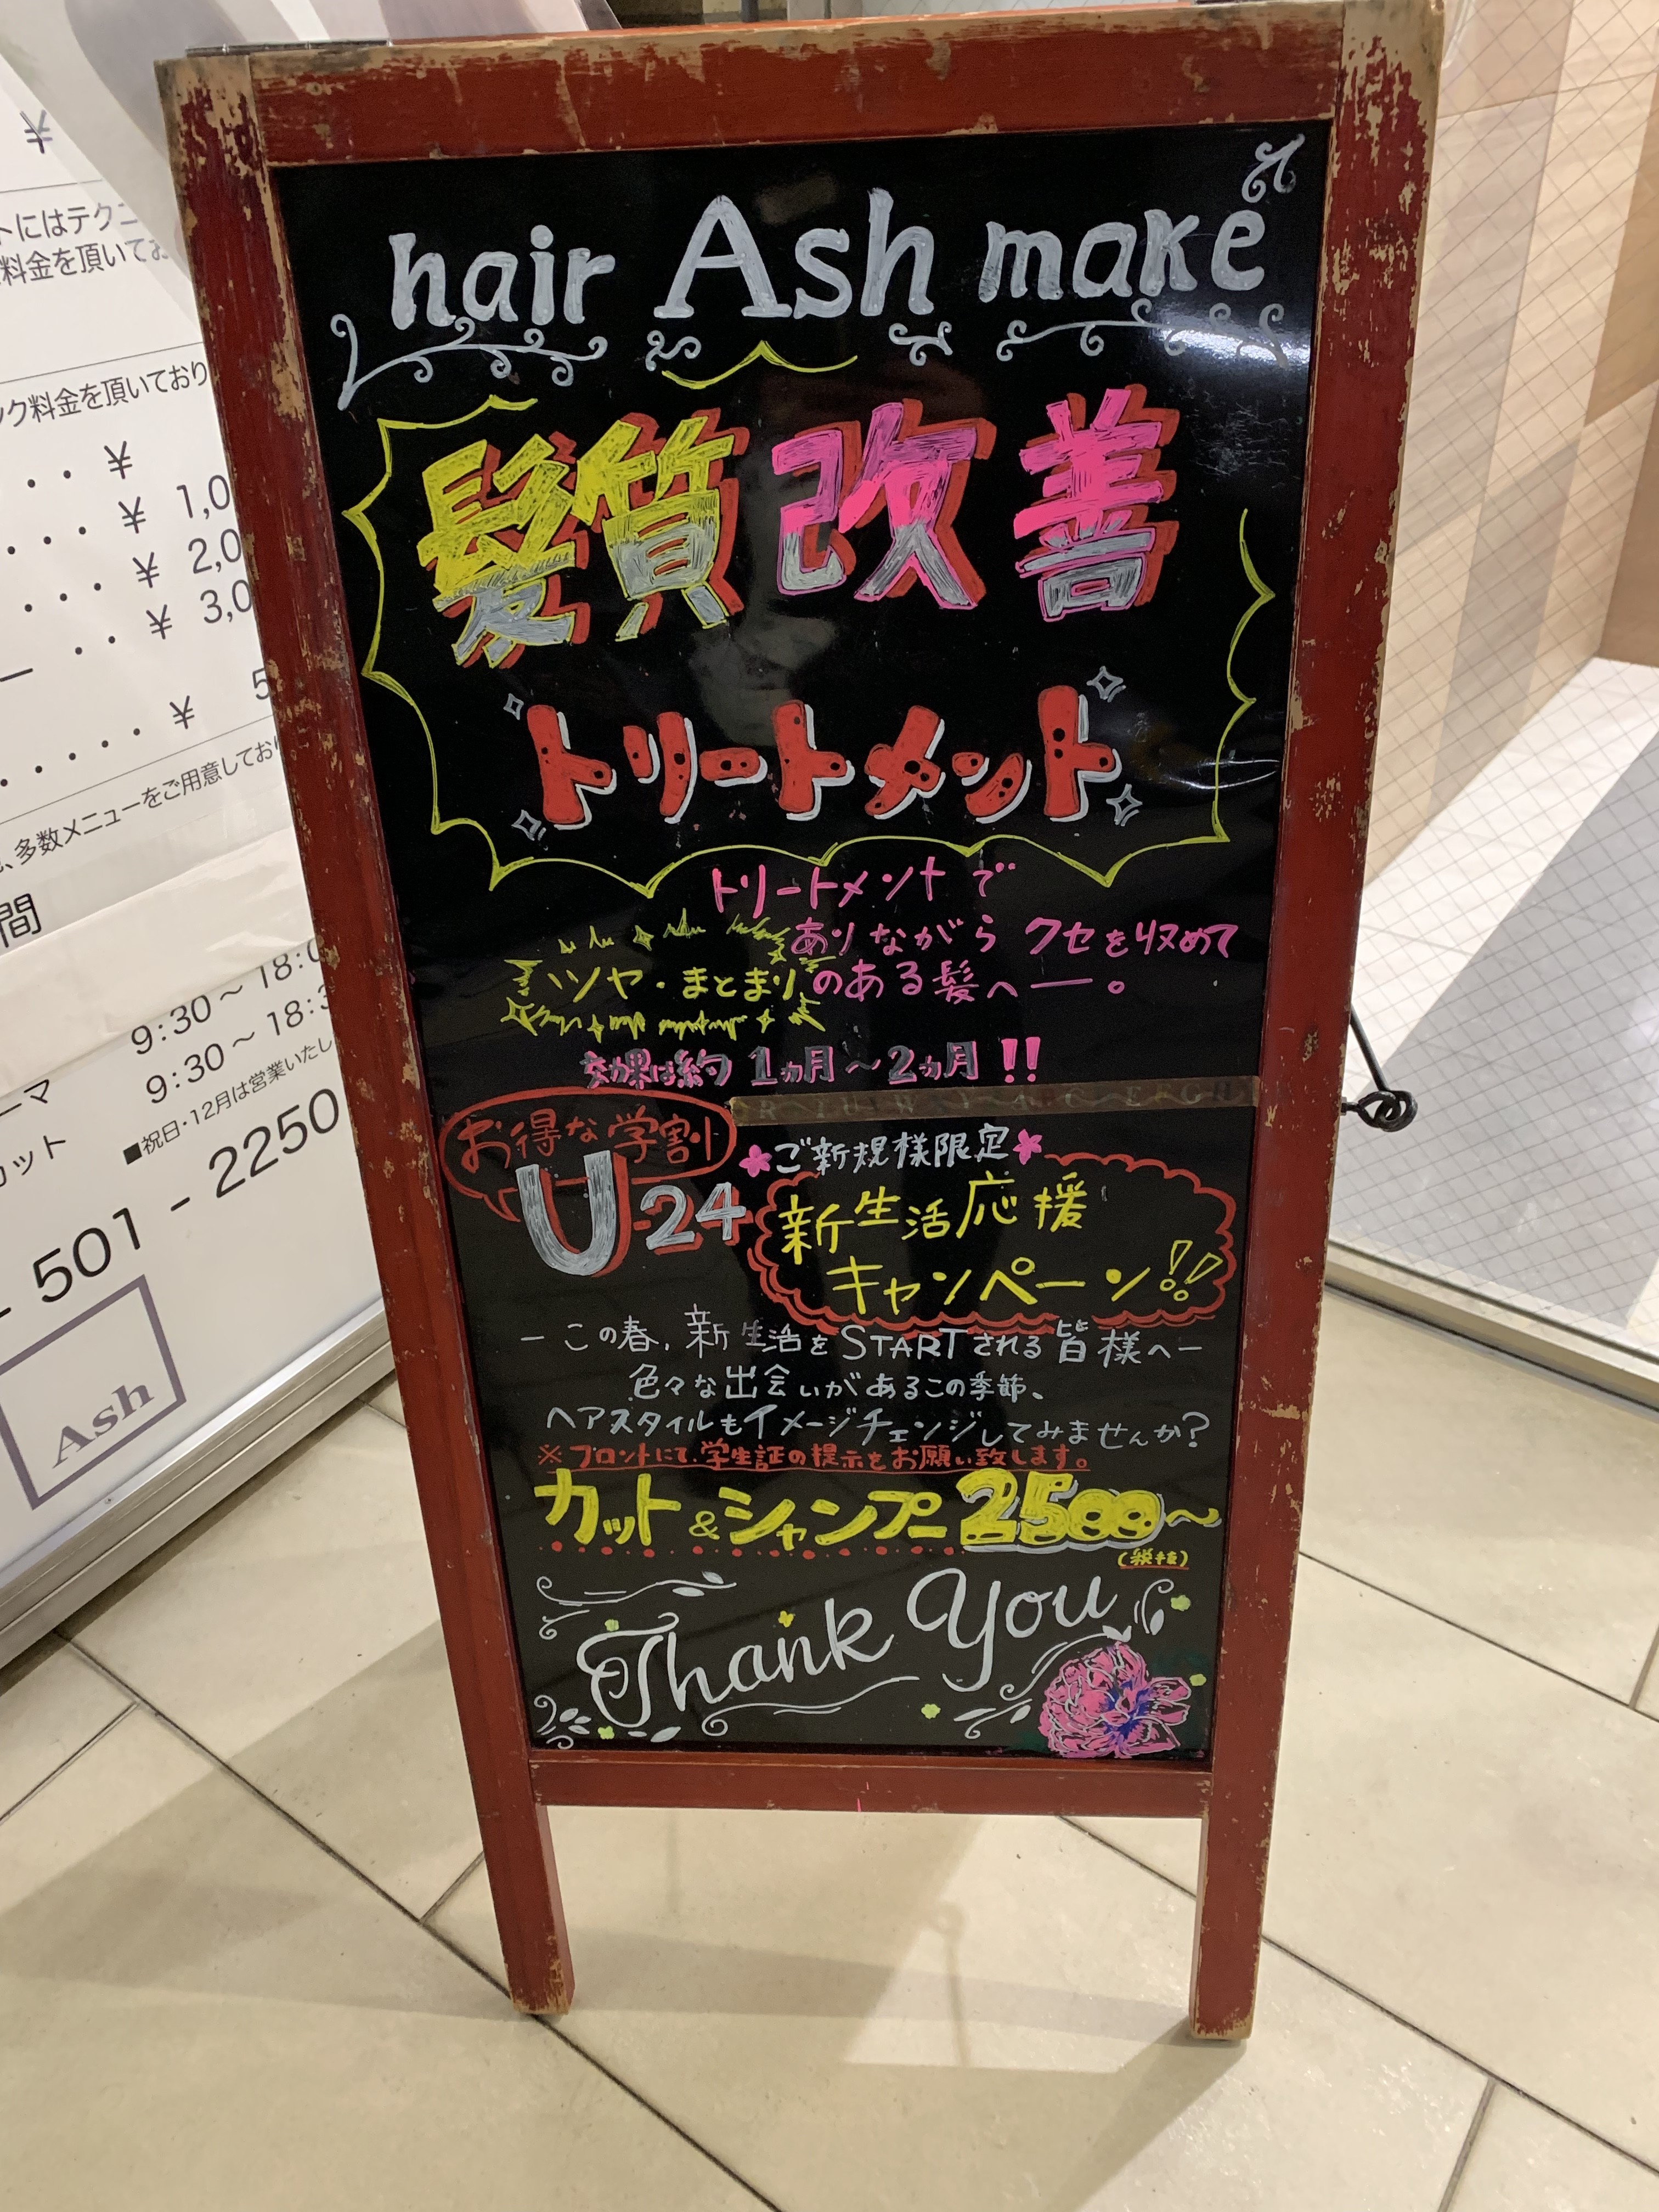 hair Ash make
髪質改善
トリートメント
トリートメントで
ありながら クセを収めて
ツヤ・まとまりのある髪へー。
効果は約 1ヵ月〜2ヵ月 !!
お得な学割
U24
ご新規様限定
新生活応援
キャンペーン!!
ーこの春、新生活をSTARTされる皆様へー
色々な出会いがあるこの季節、
ヘアスタイルもイメージチェンジしてみませんか?
※フロントにて、学生証の提示をお願い致します。
カット&シャンプー 2500〜
(税抜)
Thank You
¥
トにはテクニ
料金を頂いてお
ック料金を頂いており
・・・¥
・・・・¥ 1,0
・・・・¥ 2,0
ー ・・¥ 3,0
・・・・・¥ 5
、多数メニューをご用意しており
間
9:30〜18:0
ーマ 9:30〜18:3
カット ■祝日・12月は営業いたし
501-2250
Ash